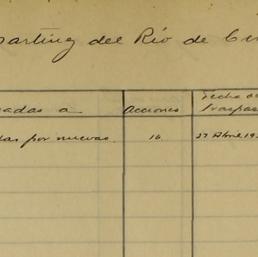 Martínez del Río de
adas a Acciones Fecha de
traspas
das por nuevas 16 27 Abril 19